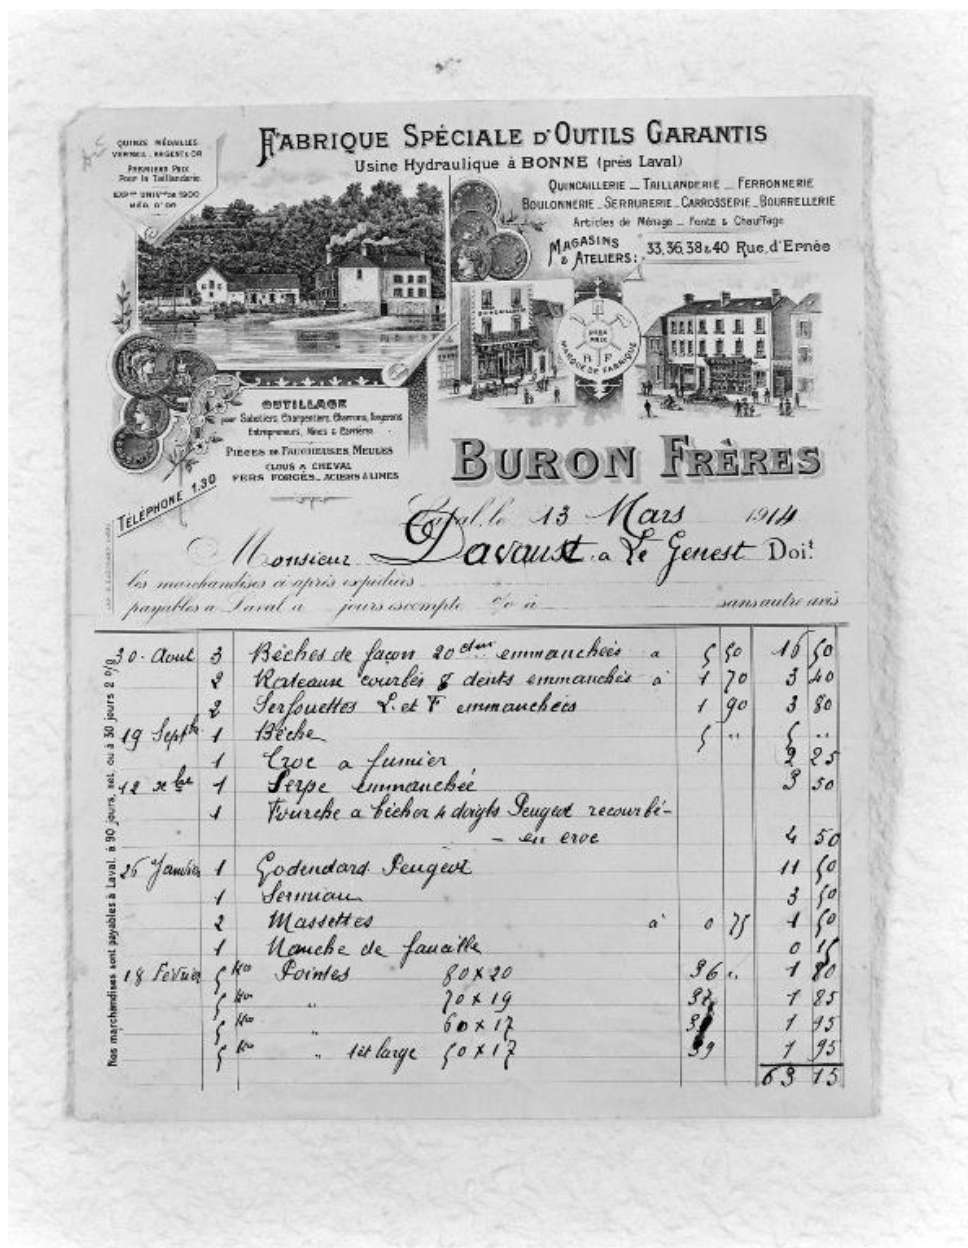 QUINZE MÉDAILLES
VERMEIL, ARGENT & OR
PREMIERS PRIX
Pour la Taillanderie
EXPon UNIVlle DE 1900
MÉD. D'OR
FABRIQUE SPÉCIALE D'OUTILS GARANTIS
Usine Hydraulique à BONNE (près Laval)
QUINCAILLERIE _ TAILLANDERIE _ FERRONNERIE
BOULONNERIE _ SERRURERIE _ CARROSSERIE _ BOURRELLERIE
Articles de Ménage _ Fonte & Chauffage
MAGASINS & ATELIERS: 33, 36, 38 & 40 Rue d'Ernée
B F
MARQUE DE FABRIQUE
OUTILLAGE
pour Sabotiers, Charpentiers, Charrons,
Entrepreneurs, Mines & Carrières
PIÈCES DE FAUCHEUSES, MEULES
CLOUS A CHEVAL
FERS FORGÉS _ ACIERS & LIMES
BURON FRÈRES
TÉLÉPHONE 1.30
Laval, le 13 Mars 1914
Monsieur Davaust a Le Genest Doit
les marchandises ci après expédiées
payables à Laval à jours escompte % à sans autre avis
Nos marchandises sont payables à Laval, à 90 jours, net, ou à 30 jours 2 %
30 Aout 3 Béches de façon 20 emmanchées a 5 50 16 50
2 Rateaux courbés 8 dents emmanchés à 1 70 3 40
2 Serfouettes L. et F emmanchées 1 90 3 80
19 Septbre 1 Béche 5 " 5 "
1 Croc a fumier 2 25
12 xbre 1 Serpe emmanchée 3 50
1 Fourche a bécher 4 doigts Peugeot recourbé-
- en croc 4 50
26 Janvier 1 Godendard Peugeot 11 50
1 3 50
2 Massettes à 0 75 1 50
1 Manche de faucille 0 15
18 Fevrier 5 Kos Pointes 80 x 20 36 " 1 80
5 Kos " 70 x 19 37 1 85
5 Kos " 60 x 17 1 95
5 Kos " têt large 50 x 17 39 1 95
63 15